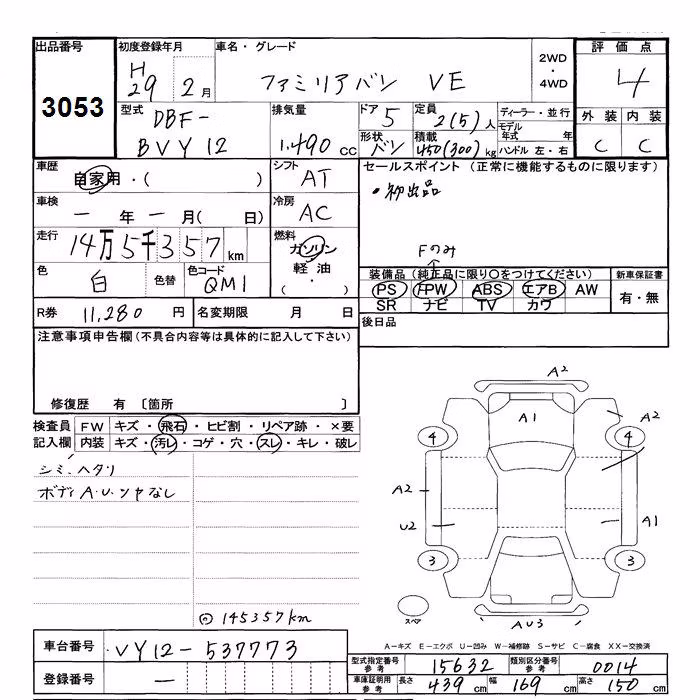 出品番号 初度登録年月 車名・グレード 2WD・4WD 評価点
3053 H29 2月 ファミリアバン VE 4
型式 DBF-BVY12 排気量 1.490cc ドア 5 定員 2(5)人 ディーラー・並行 外装 内装
形状 バン 積載 450(300)kg モデル年式 年 ハンドル 左・右 C C
車歴 自家用・( ) シフト AT セールスポイント (正常に機能するものに限ります)
・初出品
車検 一年一月( 日) 冷房 AC
走行 14万5千357km 燃料 ガソリン 軽油 ( ・ )
Fのみ
色 白 色替 色コード QM1
装備品(純正品に限り○をつけてください) 新車保証書
PS PW ABS エアB AW 有・無
SR ナビ TV カワ
R券 11,280円 名変期限 月 日 後日品
注意事項申告欄(不具合内容等は具体的に記入して下さい)
修復歴 有 〔箇所 〕
検査員 FW キズ・飛石・ヒビ割・リペア跡・×要
記入欄 内装 キズ・汚レ・コゲ・穴・スレ・キレ・破レ
シミ、ヘタリ
ボディA.U.ツヤなし
◎145357km
A2
A1 A2
4 4
A2
U2 A1
3 3
スペア AU3
A−キズ E−エクボ U−凹み W−補修跡 S−サビ C−腐食 XX−交換済
車台番号 VY12-537773
型式指定番号 参考 15632 類別区分番号 参考 0014
登録番号 −
車庫証明用 参考 長さ 439 幅 169 高さ 150